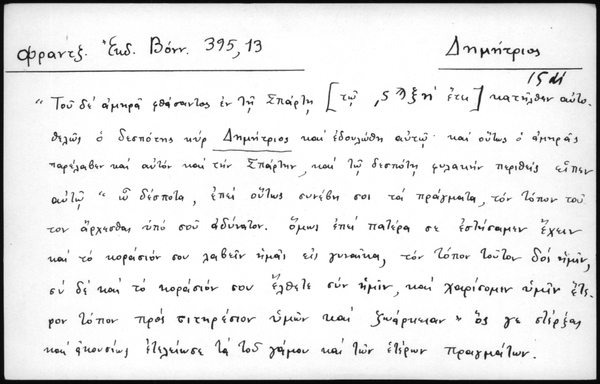 Φραντζ. Ἐκδ. Βόνν. 395,13
Δημήτριος
15 αἰ
"Τοῦ δέ ἀμηρᾶ φθάσαντος ἐν τῇ Σπάρτῃ [τῷ ͵ϛϡξηʹ ἔτει] κατῆλθεν αὐτο-
θελῶς ὁ δεσπότης κύρ Δημήτριος καί ἐδουλώθη αὐτῷ· καί οὕτως ὁ ἀμηρᾶς
παρέλαβεν καί αὐτόν καί τήν Σπάρτην, καί τῷ δεσπότῃ φυλακήν περιθείς εἶπεν
αὐτῷ "ὦ δέσποτα, ἐπεί οὕτως συνέβη σοι τά πράγματα, τόν τόπον τοῦ
τον ἄρχεσθαι ὑπό σοῦ ἀδύνατον. ὅμως ἐπεί πατέρα σε ἐστήσαμεν ἔχειν
καί τό κοράσιόν σου λαβεῖν ἡμᾶς εἰς γυναῖκα, τόν τόπον τοῦτον δός ἡμῖν,
σύ δέ καί τό κοράσιόν σου ἔλθετε σύν ἡμῖν, καί χαρίσομεν ὑμῖν ἕτε-
ρον τόπον πρός σιτηρέσιον ὑμῶν καί ζωάρκειαν" ὅς γε στέρξας
καί ἀκουσίως ἐτελείωσε τά τοῦ γάμου καί τῶν ἑτέρων πραγμάτων.